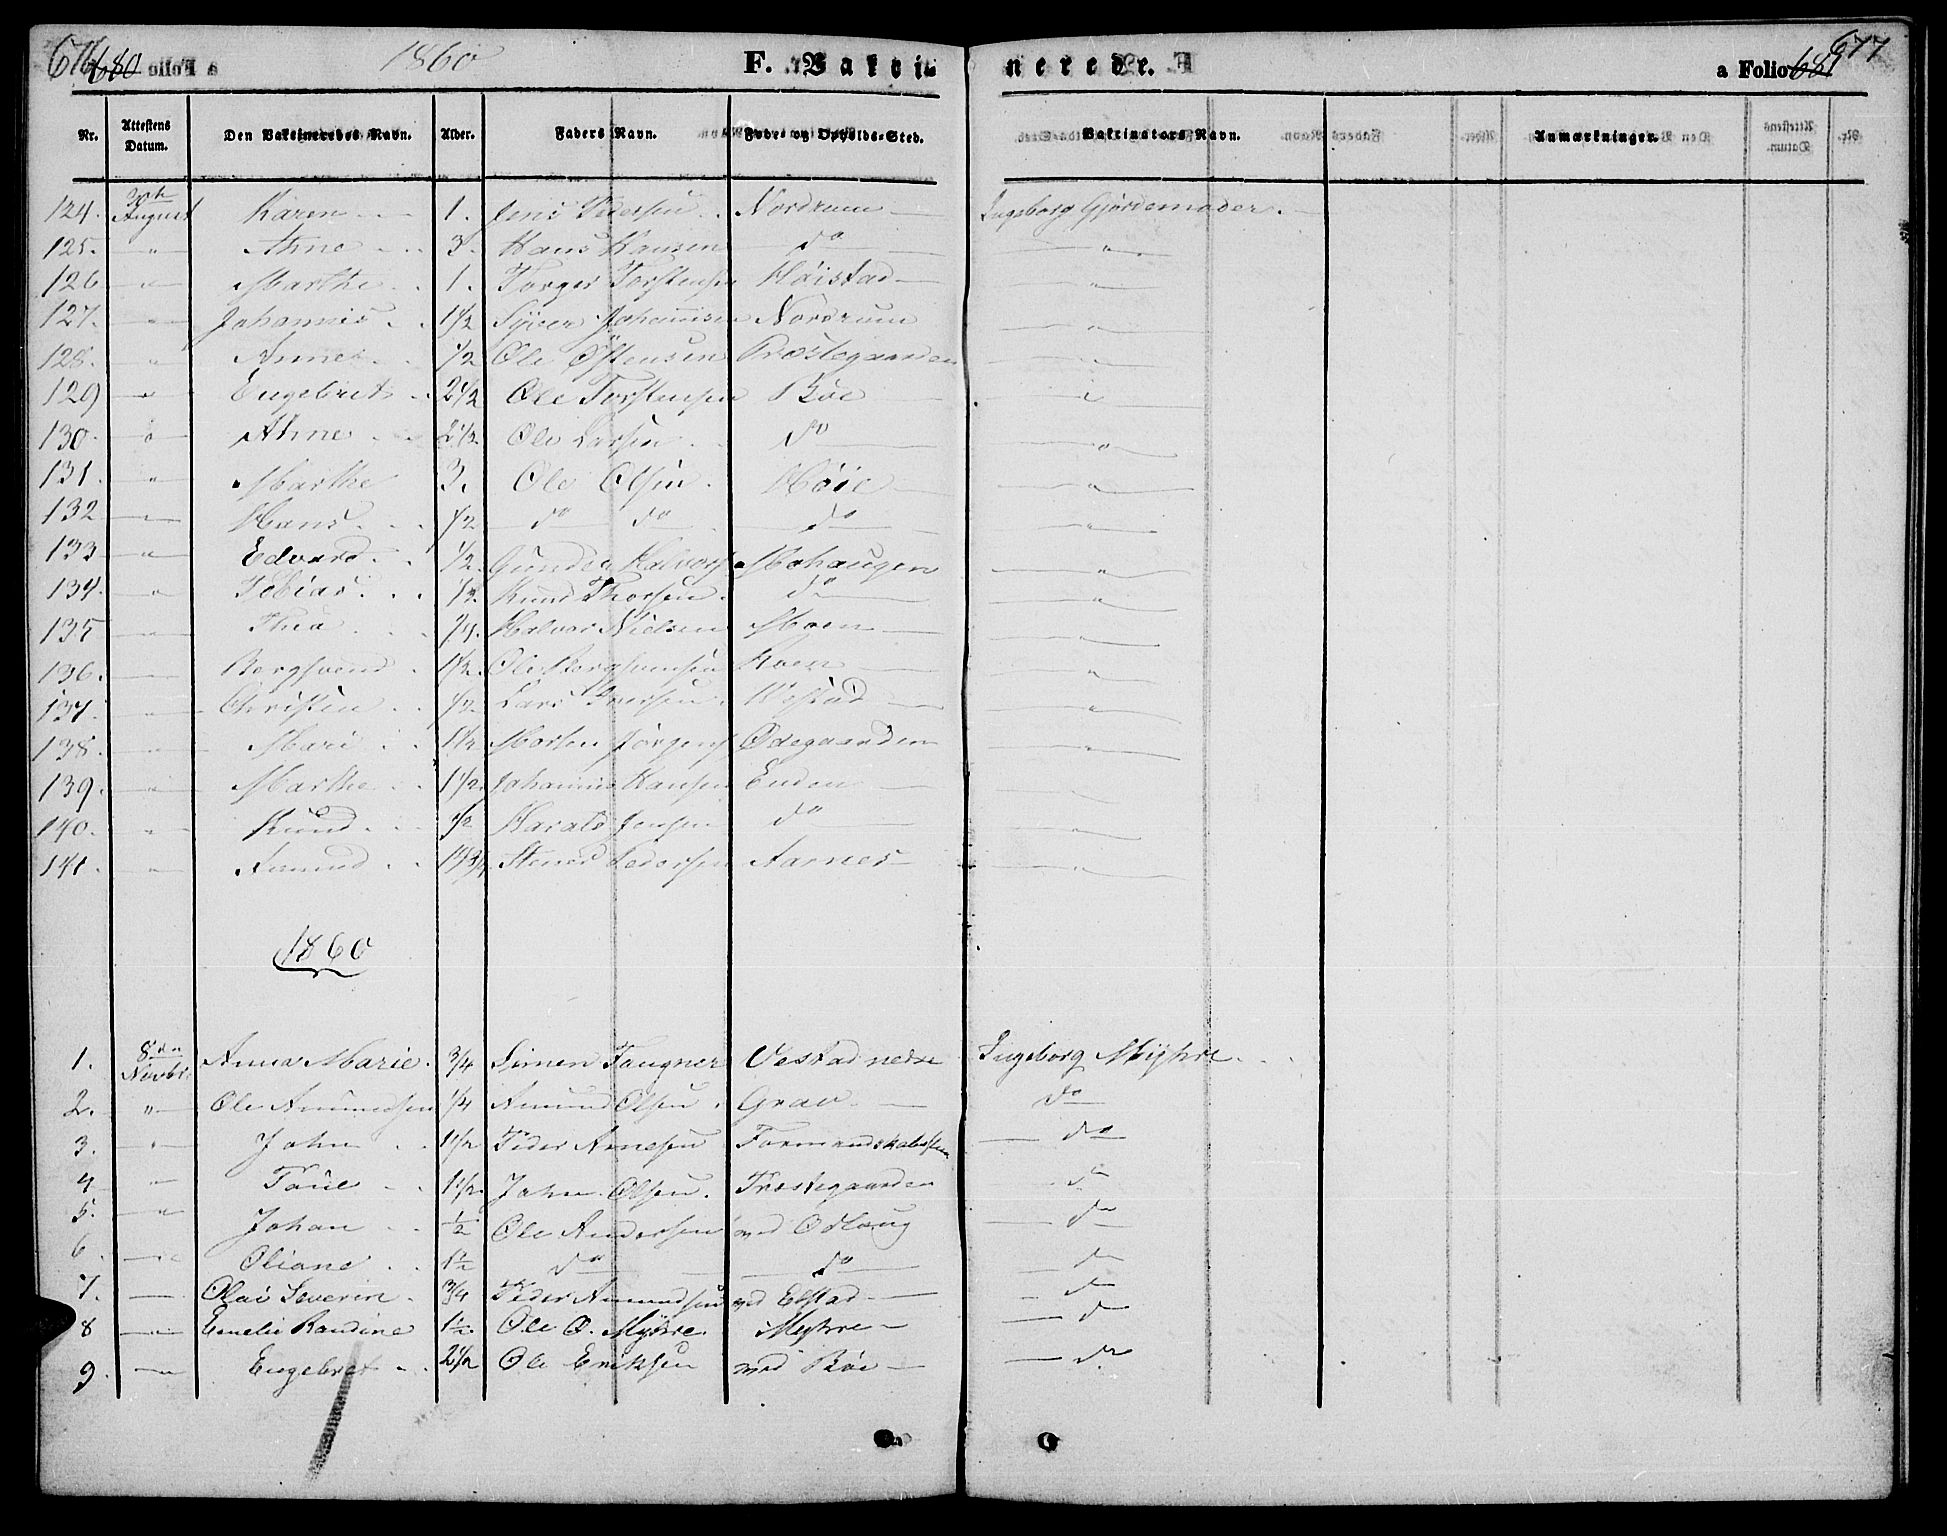 676 680 1860 F. Vakcinerede. a Folio 681 677
Nr. Attestens Datum. Den Vakcineredes Navn. Alder. Faders Navn. Fødes og Opholds-Sted. Vakcinators Navn. Anmærkninger.
124. 30te August Karen 1. Jens Pedersen Nordrum Ingeborg Gjordemoder.
125. " Ahne 3. Hans Hansen do "
126 " Marthe 1. Torger Torstensen Høistad "
127. " Johannes 1 1/2 Syver Johannisen Nordrum "
128. " Anne 1/2 Ole Østensen Præstegaarden "
129 " Engebret 2 1/2 Ole Torstensen Bøe "
130. " Ahne 2 1/2 Ole Larsen do "
131. " Marthe 3. Ole Olsen Høie "
132 " Hans 1/2 do do do "
133 " Edvard 1/2 Gunder Halvors Mohaugen "
134. " Tobias 1/2 Knud Thorsen do "
135 " Thea 1/4. Halvor Nielsen Moen "
136. " Bergsvend 1 1/2. Ole Bergsvensen Moen "
137. " Christen 1/2 Lars Iversen "
138. " Mari 1 1/2 Morten Jörgens Ødegaarden "
139. " Marthe 1 1/2 Johannis Hansen Enden "
140. " Knud 1/2 Harald Jensen do "
141. " Amund Stener Pedersen Aarnes "
1860
1. 8de Novbr Anna Marie 3/4 Simen Fangner Vestad nedre Ingeborg Myhre
2. " Ole Amundsen 1/4 Amund Olsen Grau do
3. " John 1 1/2 Peder Arnesen do
4 " 1 1/2 John Olsen Præstegaarden do
5. " Johan 1/2 Ole Andersen ved Odlaug do
6. " Oliane 1 1/2 do do do
7. Olai Severin 3/4 Peder Amundsen ved Elstad do
8 " Emelie Randine 1 1/2 Ole O. Myhre Myhre do
9. " Engebret 2 1/2 Ole Eriksen ved Bøe do